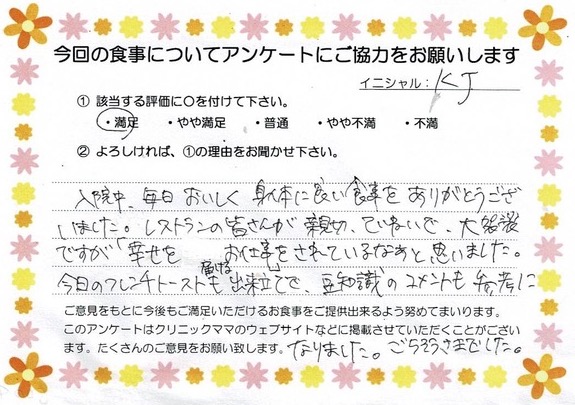 今回の食事についてアンケートにご協力をお願いします
イニシャル：KJ
① 該当する評価に○を付けて下さい。
・満足 ・やや満足 ・普通 ・やや不満 ・不満
② よろしければ、①の理由をお聞かせ下さい。
入院中、毎日おいしく身体に良い食事をありがとうござ
いました。レストランの皆さんが親切、ていねいで、大袈裟
ですが「幸せを届ける」お仕事をされているなあと思いました。
今日のフレンチトーストも出来立てで、豆知識のコメントも参考に
ご意見をもとに今後もご満足いただけるお食事をご提供出来るよう努めてまいります。
このアンケートはクリニックママのウェブサイトなどに掲載させていただくことがござい
ます。たくさんのご意見をお願い致します。なりました。ごちそうさまでした。